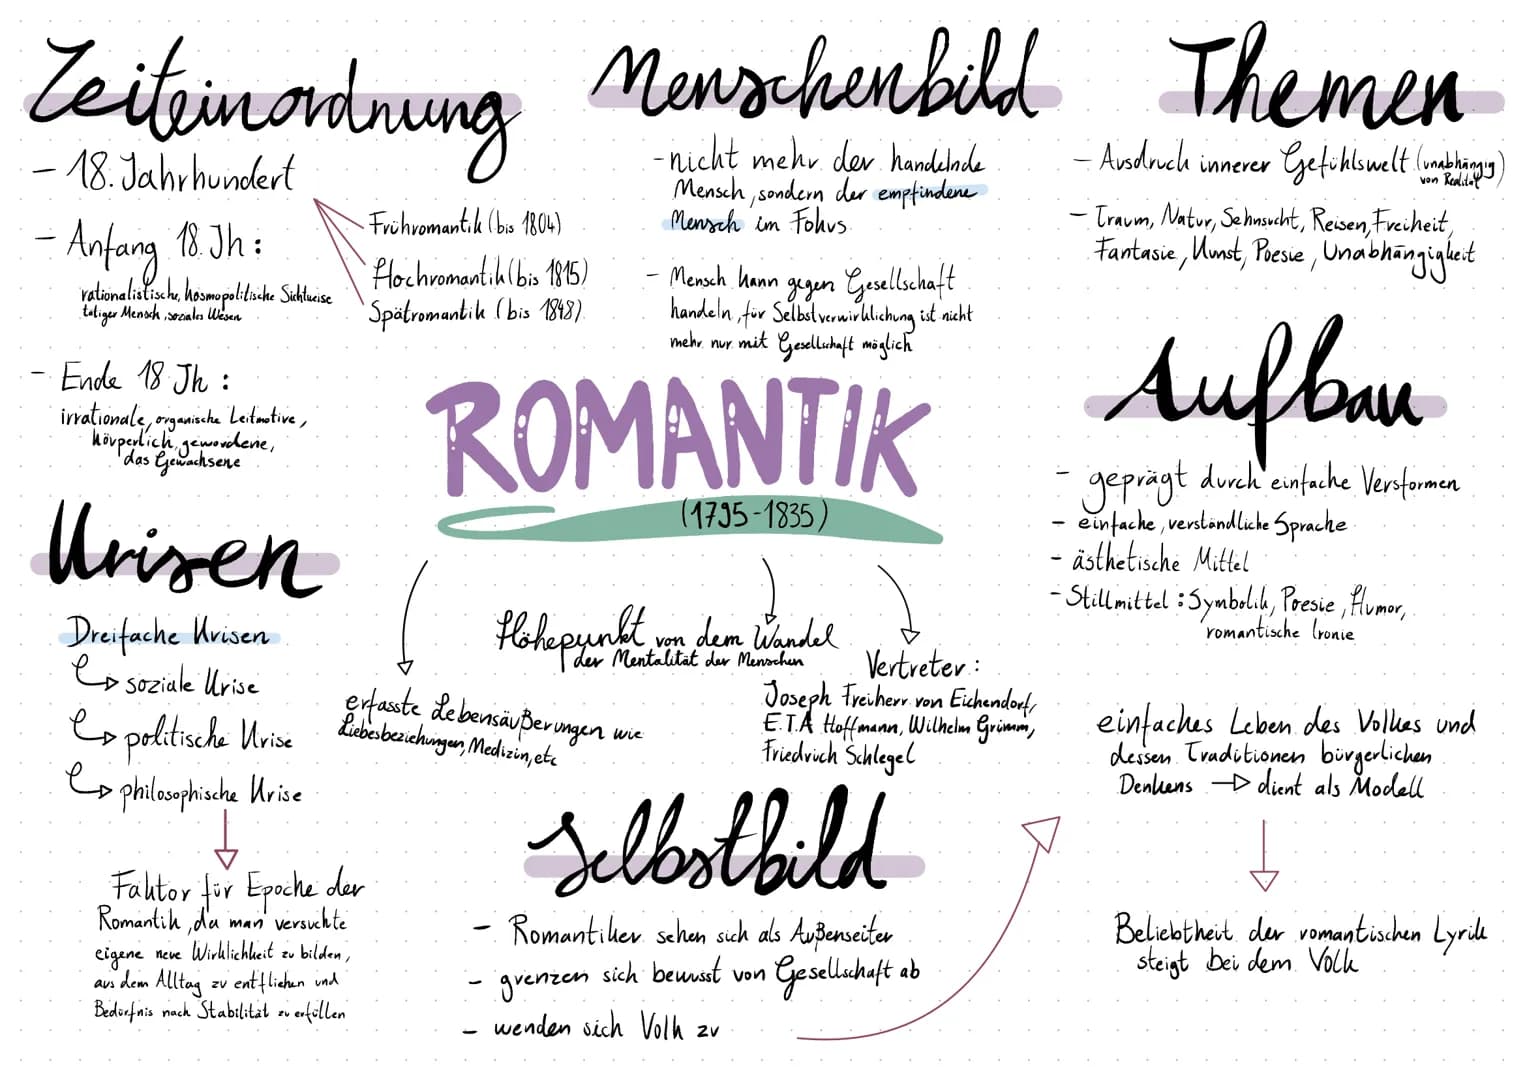 Zeiteinordnung
- 18. Jahrhundert
Frühromantik (bis 1804)
Hochromantik (bis 1815)
Spätromantik (bis 1848)
- Anfang 18. Jh:
rationalistische, kosmopolitische Sichtweise
tätiger Mensch, soziales Wesen
- Ende 18 Jh:
irrationale, organische Leitmotive,
körperlich gewordene,
das Gewachsene
Krisen
Dreifache Krisen
soziale Krise
politische Krise
philosophische Krise
Faktor für Epoche der
Romantik, da man versuchte
eigene neue Wirklichkeit zu bilden,
aus dem Alltag zu entfliehen und
Bedürfnis nach Stabilität zu erfüllen
Menschenbild
- nicht mehr der handelnde
Mensch, sondern der empfindene
Mensch im Fokus
- Mensch kann gegen Gesellschaft
handeln, für Selbstverwirklichung ist nicht
mehr nur mit Gesellschaft möglich
ROMANTIK
(1795-1835)
erfasste Lebensäußerungen wie
Liebesbeziehungen, Medizin, etc
Höhepunkt von dem Wandel
der Mentalität der Menschen
Vertreter:
Joseph Freiherr von Eichendorf,
E.T.A Hoffmann, Wilhelm Grimm,
Friedrich Schlegel
Selbstbild
- Romantiker sehen sich als Außenseiter
- grenzen sich bewusst von Gesellschaft ab
- wenden sich Volk zu
Themen
- Ausdruck innerer Gefühlswelt (unabhängig
von Realität)
- Traum, Natur, Sehnsucht, Reisen, Freiheit,
Fantasie, Kunst, Poesie, Unabhängigkeit
Aufbau
- geprägt durch einfache Versformen
- einfache, verständliche Sprache
- ästhetische Mittel
- Stillmittel: Symbolik, Poesie, Humor,
romantische Ironie
einfaches Leben des Volkes und
dessen Traditionen bürgerlichen
Denkens → dient als Modell
Beliebtheit der romantischen Lyrik
steigt bei dem Volk